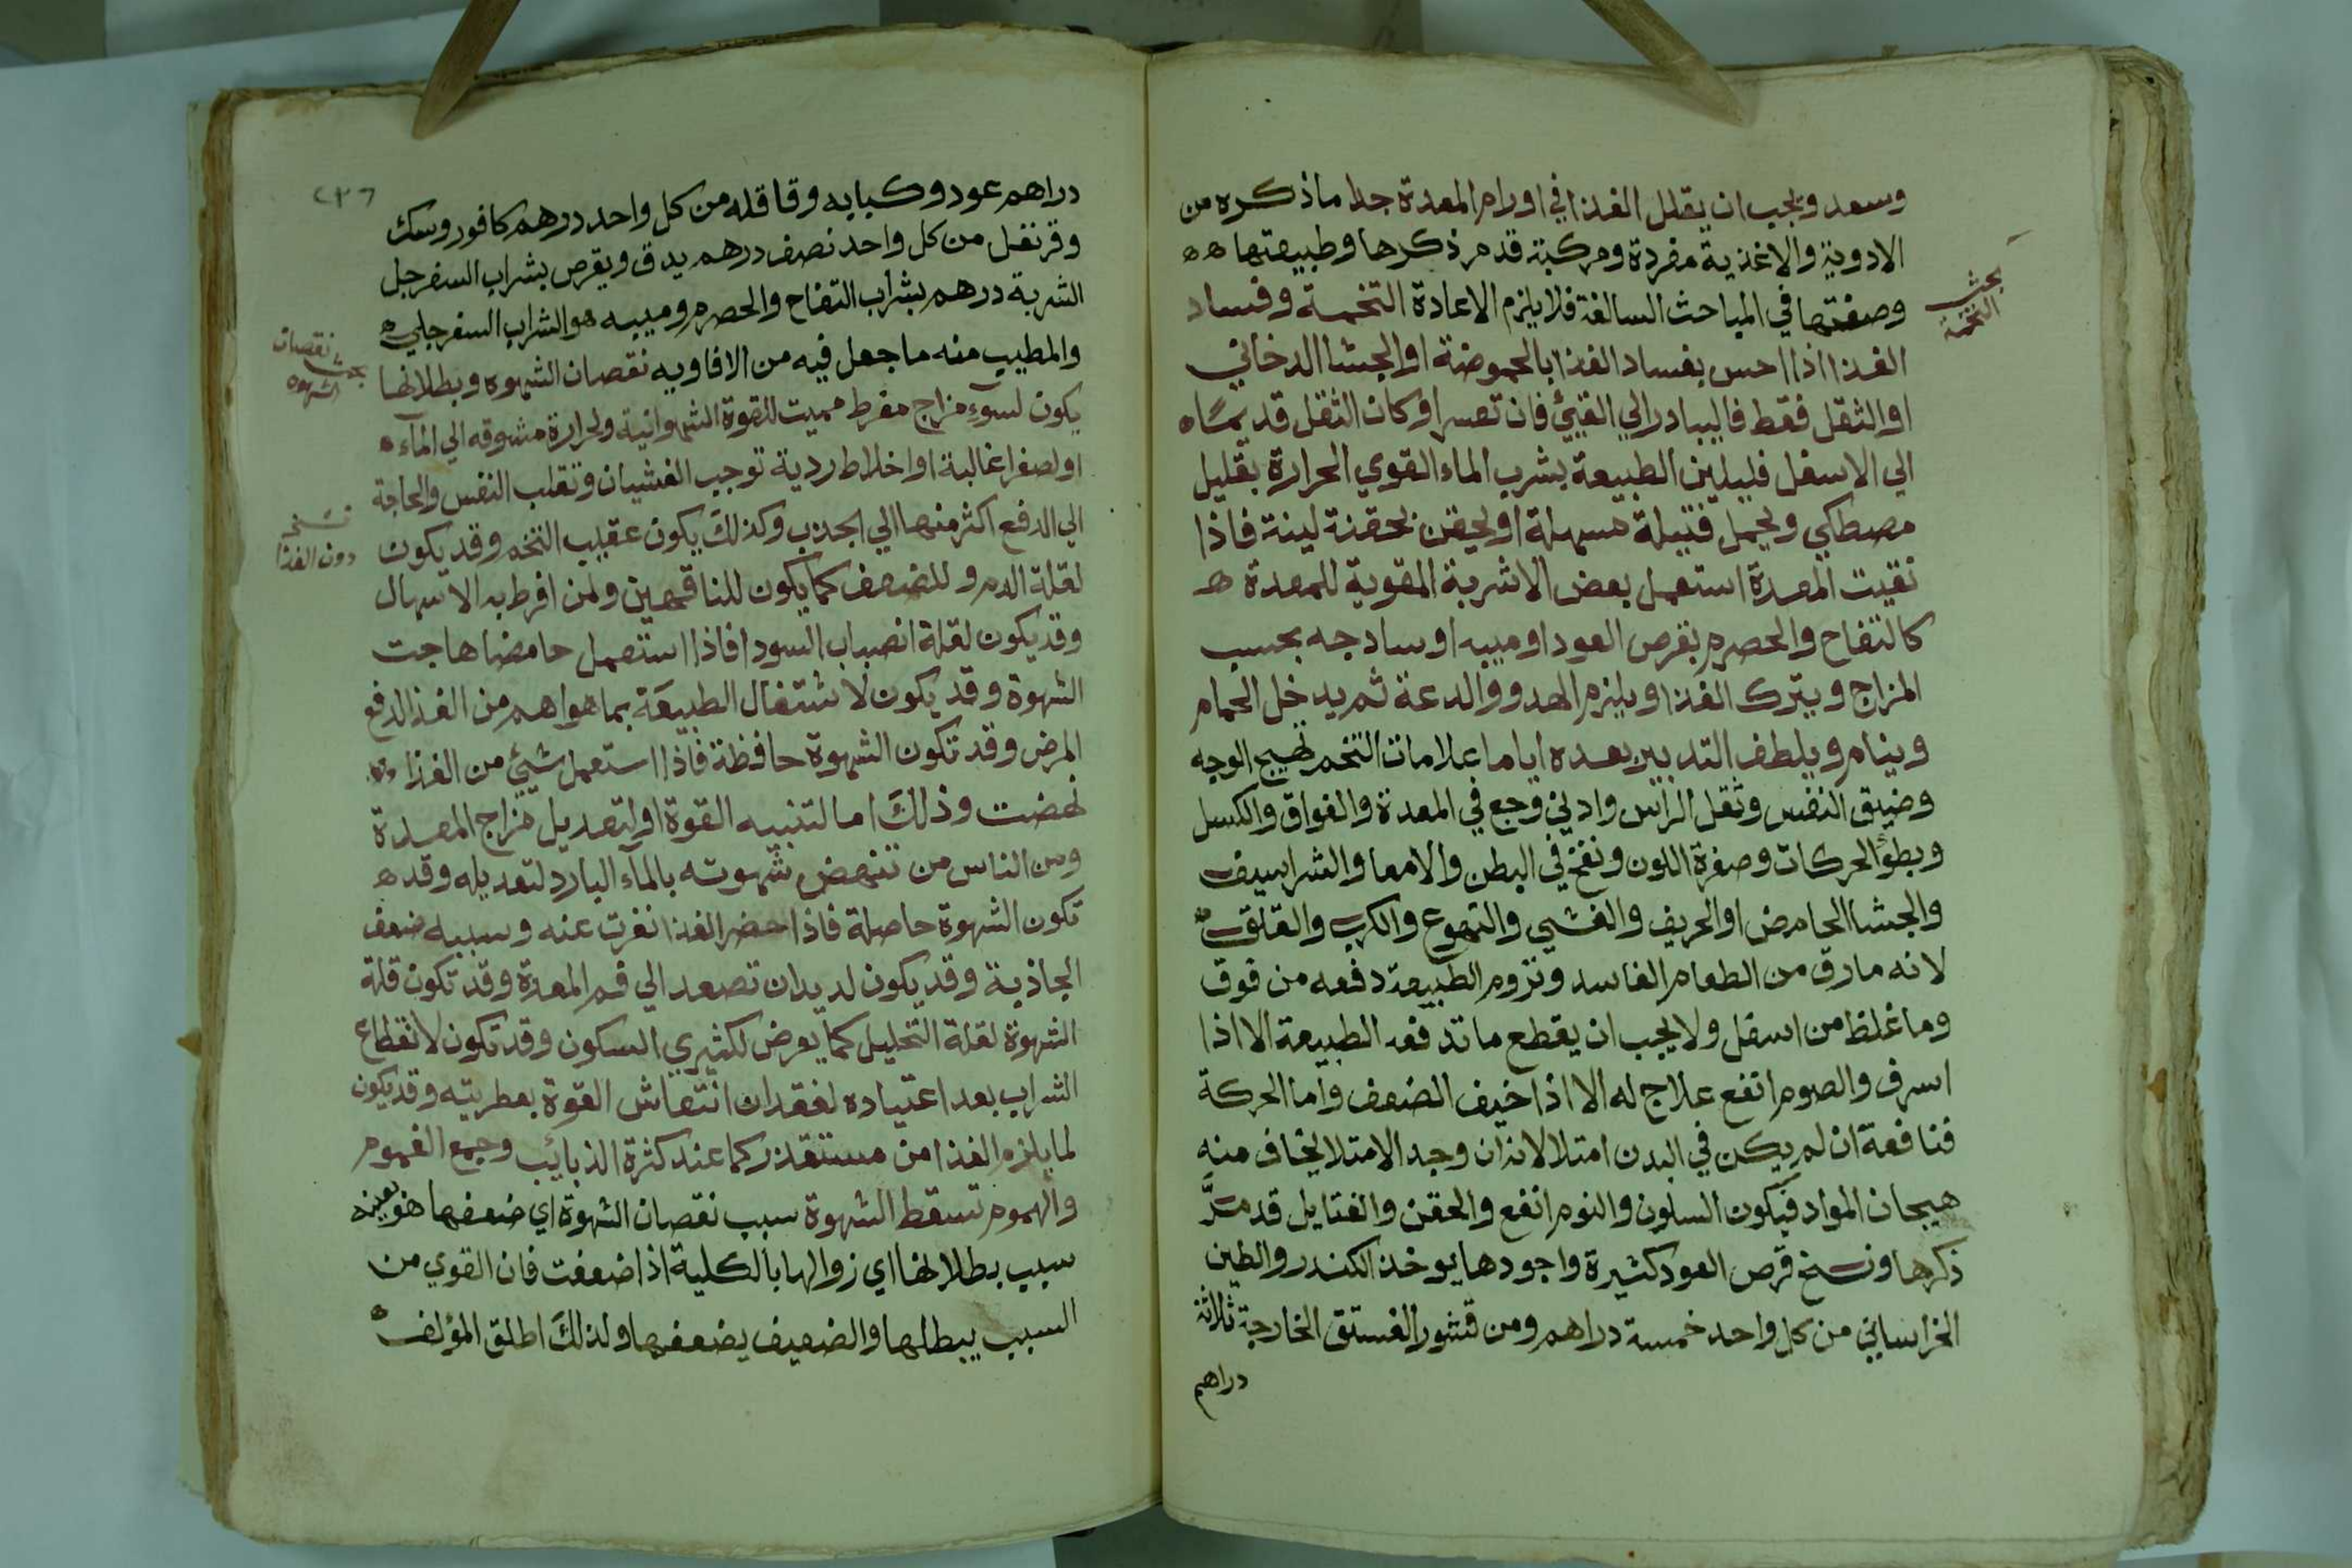 وسعد ويجب ان يقلل الغذا في اورام المعدة جدا ماذكره من
الادوية والاغذية مفردة ومركبة قد مر ذكرها وطبيعتها هه
وصفتها في المباحث السالفة فلا يلزم الاعادة التخمة وفساد
بحث
التخمة
الغذا اذا احس بفساد الغذا بالحموضة او الجشا الدخاني
او الثقل فقط فاليبادر الي القيئ فان تعسر او كان الثقل قد
الي الاسفل فليلين الطبيعة بشرب الماء القوي الحرارة بقليل
مصطكي ويحمل فتيلة مسهلة او يحقن بحقنة لينة فاذا
نقيت المعدة استعمل بعض الاشربة المقوية للمعدة ه
كالتفاح والحصرم بقرص العود او ميبه او سادجه بحسب
المزاج ويترك الغذا ويلزم الهدو والدعة ثم يدخل الحمام
وينام ويلطف التدبير بعده اياما علامات التخم تهيج الوجه
وضيق النفس وثقل الراس وادني وجع في المعدة والفواق والكسل
وبطؤ الحركات وصفرة اللون ونفخ في البطن والامعا والشراسيف
والجشا الحامض او الحريف والغشي والتهوع والكرب والقلق
لانه مارق من الطعام الفاسد وتروم الطبيعة دفعه من فوق
وما غلظ من اسفل ولا يجب ان يقطع ما تدفعه الطبيعة الا اذا
اسرف والصوم انفع علاج له الا اذا خيف الضعف واما الحركة
فنافعة ان لم يكن في البدن امتلا لانه ان وجد الامتلا يخاف منه
هيجان المواد فيكون السكون والنوم انفع والحقن والفتايل قد مرَّ
ذكرها ونسخ قرص العود كثيرة واجودها يوخذ الكندر والطين
الخراساني من كل واحد خمسة دراهم ومن قشور الفستق الخارجة ثلاثة
دراهم
٢٣٦
دراهم عود وكبابه وقاقله من كل واحد درهم كافور وسك
وقرنفل من كل واحد نصف درهم يدق ويقرص بشراب السفرجل
الشربة درهم بشراب التفاح والحصرم وميبه هو الشراب السفرجلي ه
والمطيب منه ما جعل فيه من الافاويه نقصان الشهوه وبطلانها
بحث نقصان
الشهوه
يكون لسوء مزاج مفرط مميت للقوة الشهوانية ولحرارة مشوقه الي المآء ه
او لصفرا غالبة او اخلاط ردية توجب الغشيان وتقلب النفس والحاجة
الي الدفع اكثر منها الي الجذب وكذلك يكون عقيب التخم وقد يكون
نسخه
دون الغذا
لقلة الدم وللضعف كما يكون للناقهين ولمن افرط به الاسهال
وقد يكون لقلة انصباب السودا فاذا استعمل حامضا هاجت
الشهوة وقد يكون لاشتغال الطبيعة بما هو اهم من الغذا لدفع
المرض وقد تكون الشهوة حافظة فاذا استعمل شيئ من الغذا
نهضت وذلك اما لتنبيه القوة او لتعديل مزاج المعدة
ومن الناس من تنهض شهوته بالمآء البارد لتعديله وقد ه
تكون الشهوة حاصلة فاذا حضر الغذا نفرت عنه وسببه ضعف
الجاذبة وقد يكون لديدان تصعد الي فم المعدة وقد تكون قلة
الشهوة لقلة التحليل كما يعرض لكثيري السكون وقد تكون لانقطاع
الشراب بعد اعتياده لفقدان انتعاش القوة بعطريته وقد يكون
لما يلزم الغذا من مستقذر كما عند كثرة الذبائب وجمع الغموم
والهموم تسقط الشهوة سبب نقصان الشهوة اي ضعفها هو بعينه
سبب بطلانها اي زوالها بالكلية اذا ضعفت فان القوي من
السبب يبطلها والضعيف يضعفها ولذلك اطلق المؤلف ه